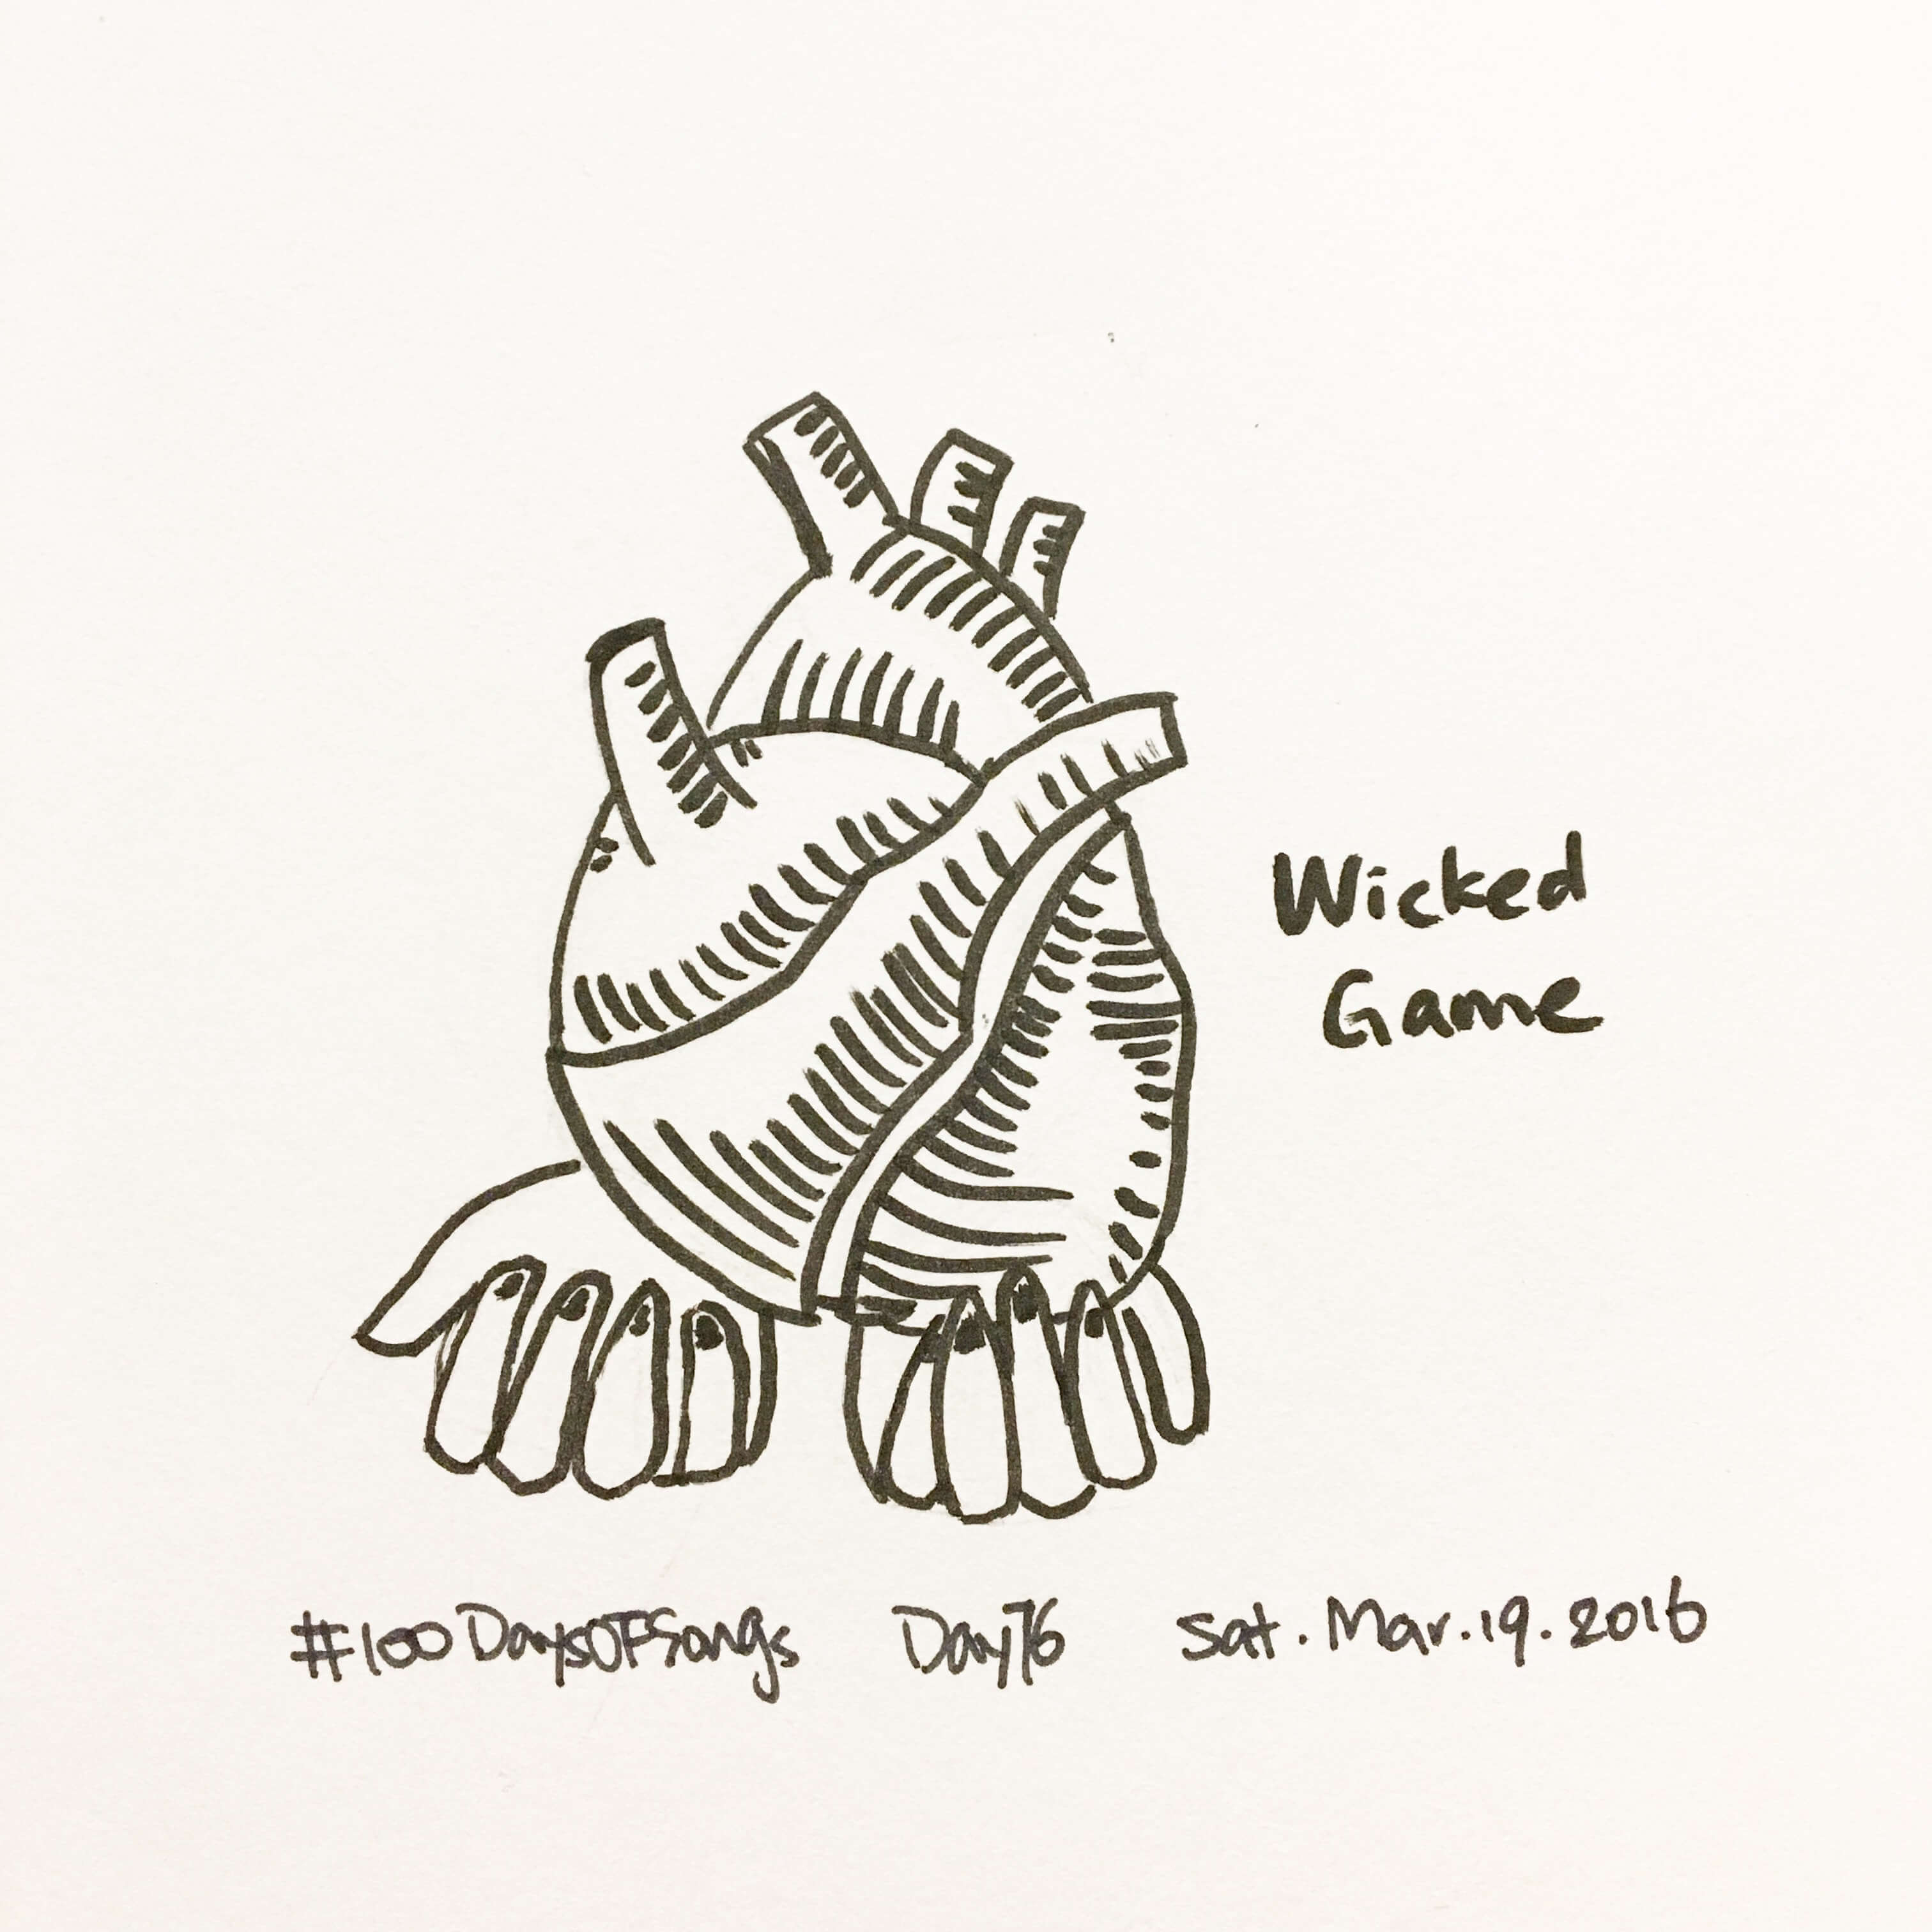 Wicked
Game
#100DaysOfSongs Day76 Sat. Mar. 19. 2016